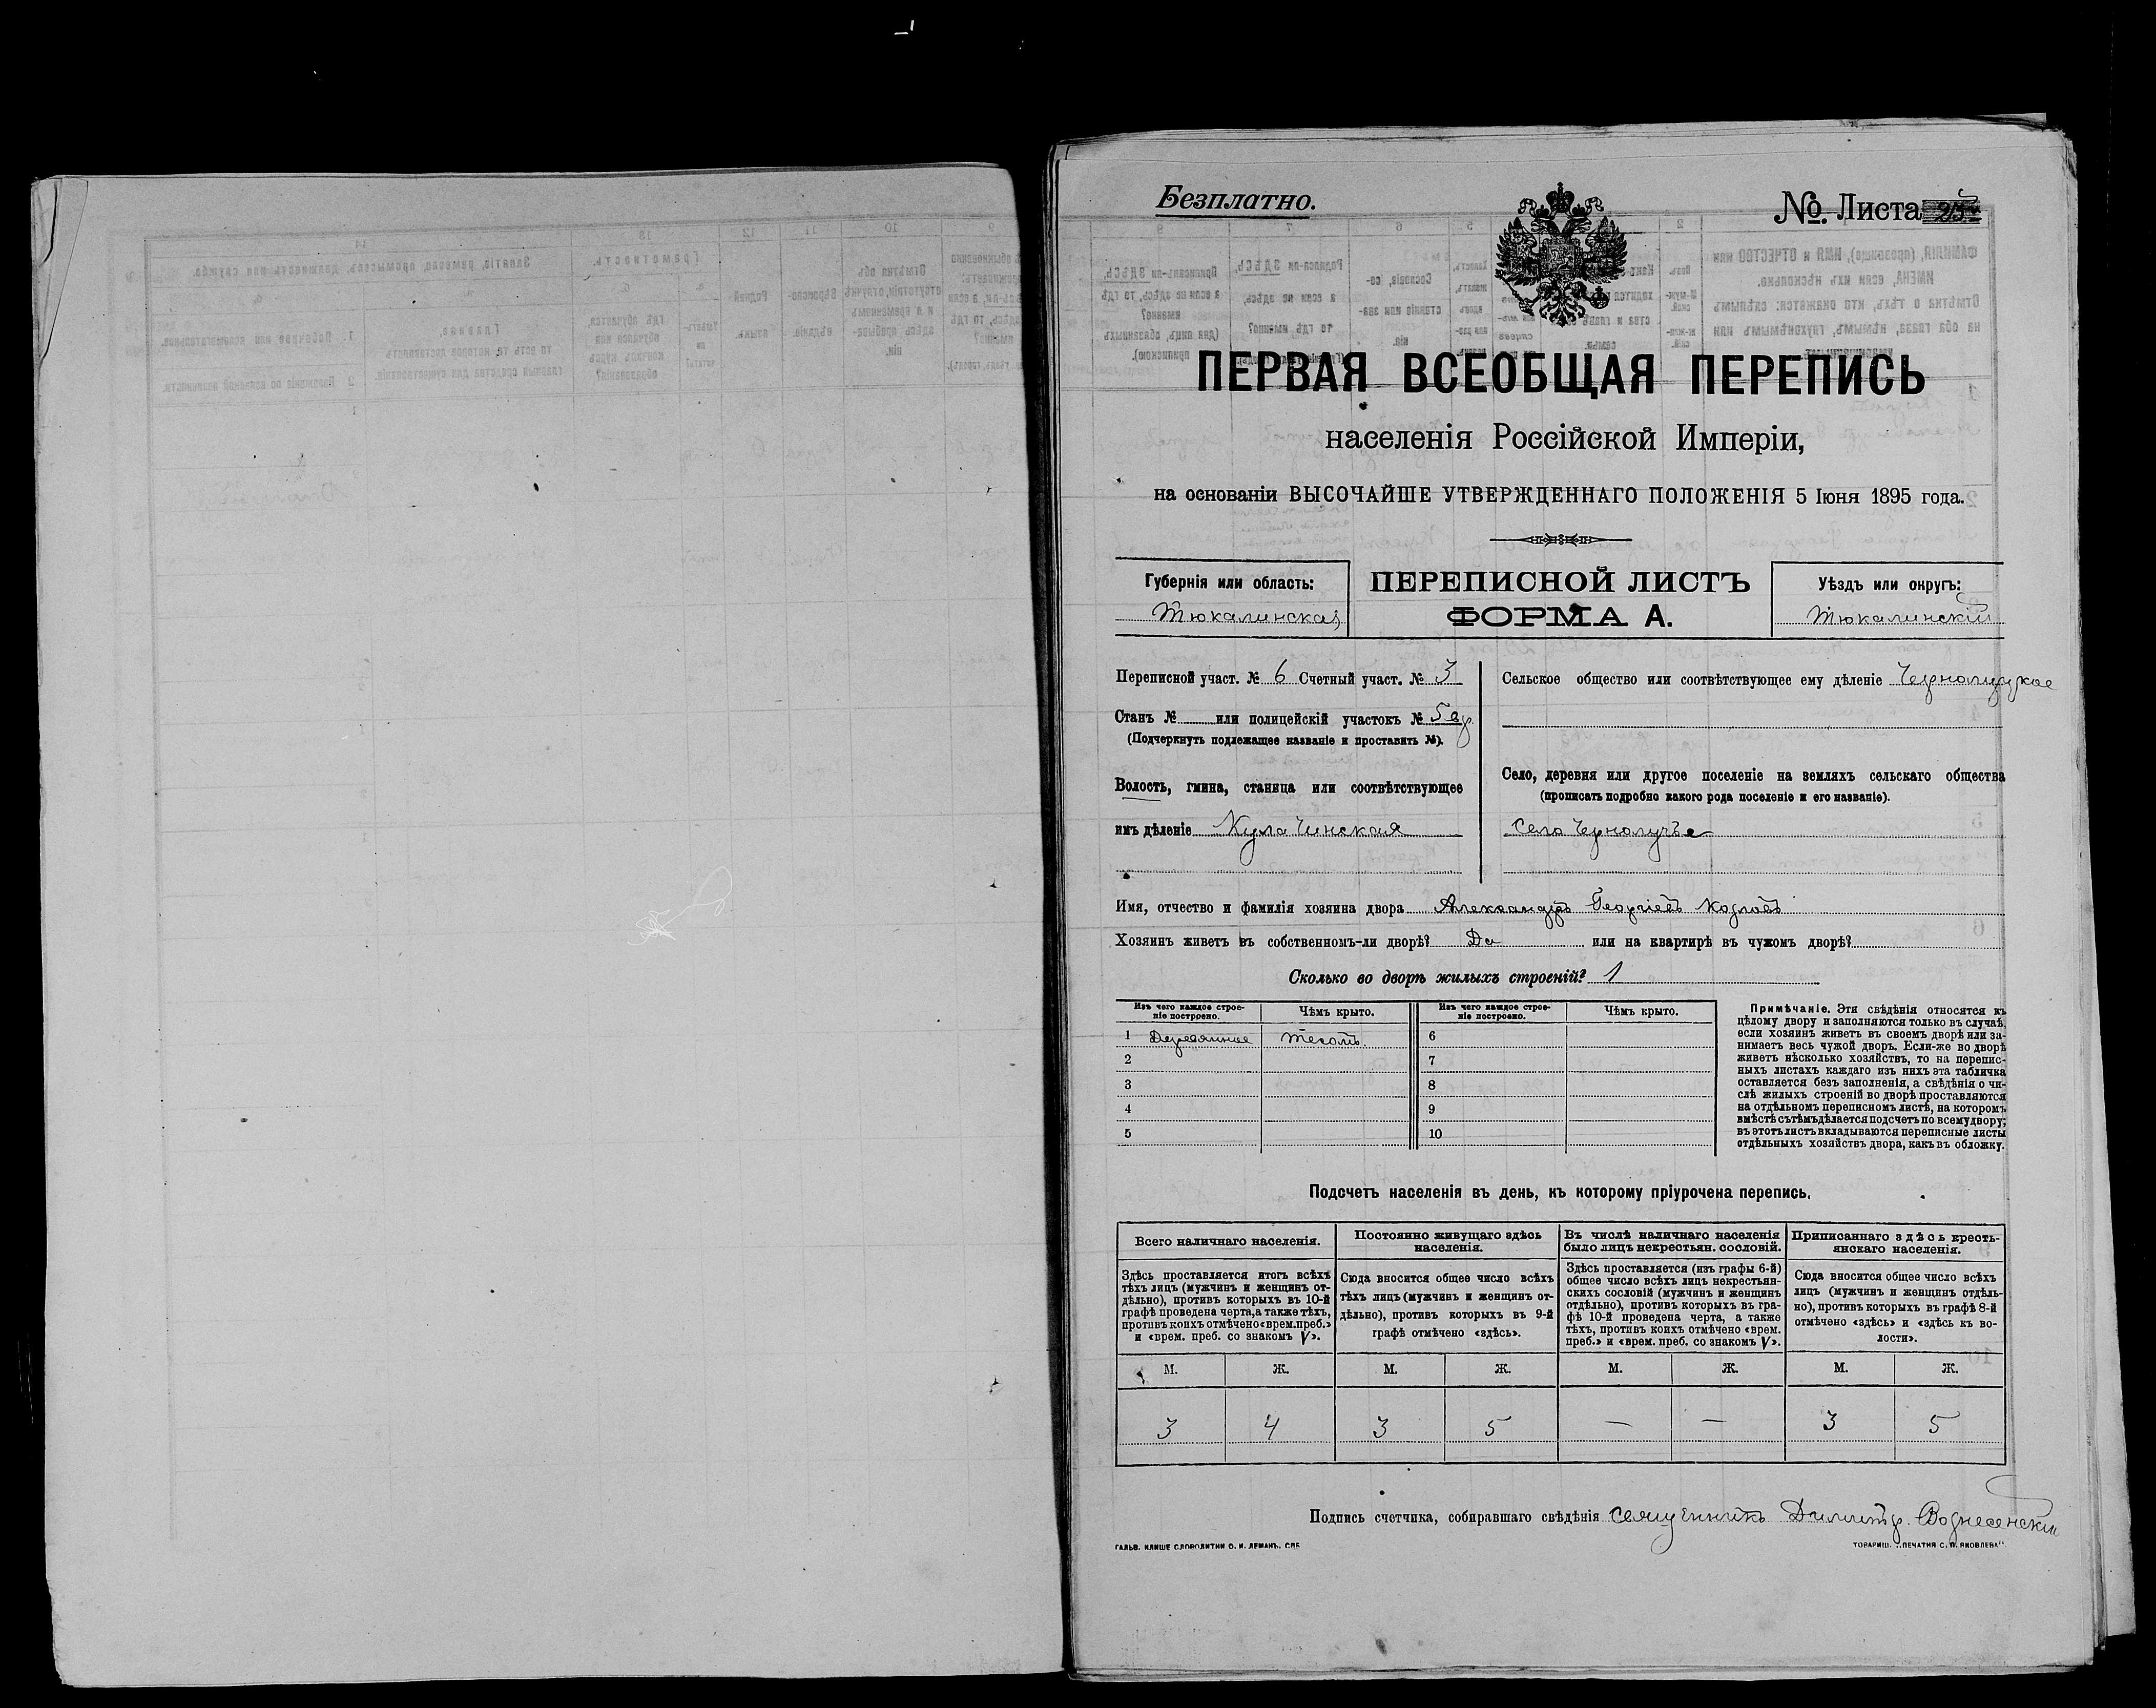 Безплатно.
№. Листа 25
ПЕРВАЯ ВСЕОБЩАЯ ПЕРЕПИСЬ
населенія Россійской Имперіи,
на основаніи ВЫСОЧАЙШЕ УТВЕРЖДЕННАГО ПОЛОЖЕНІЯ 5 Іюня 1895 года.
Губернія или область:
Тюкалинская
ПЕРЕПИСНОЙ ЛИСТЪ
ФОРМА А.
Уѣздъ или округъ:
Тюкалинскій
Переписной участ. № 6 Счетный участ. № 3
Станъ № или полицейскій участокъ № 5
(Подчеркнуть подлежащее названіе и проставить №).
Волость, гмина, станица или соотвѣтствующее
имъ дѣленіе Кулачинская
Сельское общество или соотвѣтствующее ему дѣленіе Чернолуцкое
Село, деревня или другое поселеніе на земляхъ сельскаго общества
(прописать подробно какого рода поселеніе и его названіе).
Село Чернолучье
Имя, отчество и фамилія хозяина двора Александръ Георгіевъ Козловъ
Хозяинъ живетъ въ собственномъ-ли дворѣ? Да или на квартирѣ въ чужомъ дворѣ?
Сколько во дворѣ жилыхъ строеній? 1
Изъ чего каждое строе-
ніе построено.
Чѣмъ крыто.
Изъ чего каждое строе-
ніе построено.
Чѣмъ крыто.
1 Деревянное Тесомъ 6
2 7
3 8
4 9
5 10
Примѣчаніе. Эти свѣдѣнія относятся къ
цѣлому двору и заполняются только въ случаѣ,
если хозяинъ живетъ въ своемъ дворѣ или за-
нимаетъ весь чужой дворъ. Если-же во дворѣ
живетъ нѣсколько хозяйствъ, то на перепис-
ныхъ листахъ каждаго изъ нихъ эта табличка
оставляется безъ заполненія, а свѣдѣнія о чи-
слѣ жилыхъ строеній во дворѣ проставляются
на отдѣльномъ переписномъ листѣ, на которомъ
вмѣстѣ съ тѣмъ дѣлается подсчетъ по всему двору;
въ этотъ листъ вкладываются переписные листы
отдѣльныхъ хозяйствъ двора, какъ въ обложку.
Подсчетъ населенія въ день, къ которому пріурочена перепись.
Всего наличнаго населенія.
Здѣсь проставляется итогъ всѣхъ
тѣхъ лицъ (мужчинъ и женщинъ от-
дѣльно), противъ которыхъ въ 10-й
графѣ проведена черта, а также тѣхъ,
противъ коихъ отмѣчено «врем. преб.»
и «врем. преб. со знакомъ V».
Постоянно живущаго здѣсь
населенія.
Сюда вносится общее число всѣхъ
тѣхъ лицъ (мужчинъ и женщинъ от-
дѣльно), противъ которыхъ въ 9-й
графѣ отмѣчено «здѣсь».
Въ числѣ наличнаго населенія
было лицъ некрестьян. сословій.
Здѣсь проставляется (изъ графы 6-й)
общее число всѣхъ лицъ некрестьян-
скихъ сословій (мужчинъ и женщинъ
отдѣльно), противъ которыхъ въ гра-
фѣ 10-й проведена черта, а также
тѣхъ, противъ коихъ отмѣчено «врем.
преб.» и «врем. преб. со знакомъ V».
Приписаннаго здѣсь кресть-
янскаго населенія.
Сюда вносится общее число всѣхъ
лицъ (мужчинъ и женщинъ отдѣль-
но), противъ которыхъ въ графѣ 8-й
отмѣчено «здѣсь» и «здѣсь къ во-
лости».
М. Ж. М. Ж. М. Ж. М. Ж.
3 4 3 5 — — 3 5
Подпись счетчика, собиравшаго свѣдѣнія священникъ Димитр. Вознесенскій
ГАЛЬВ. КЛИШЕ СЛОВОЛИТНИ О. И. ЛЕМАНЪ. СПБ
ТОВАРИЩ. „ПЕЧАТНЯ С. П. ЯКОВЛЕВА"